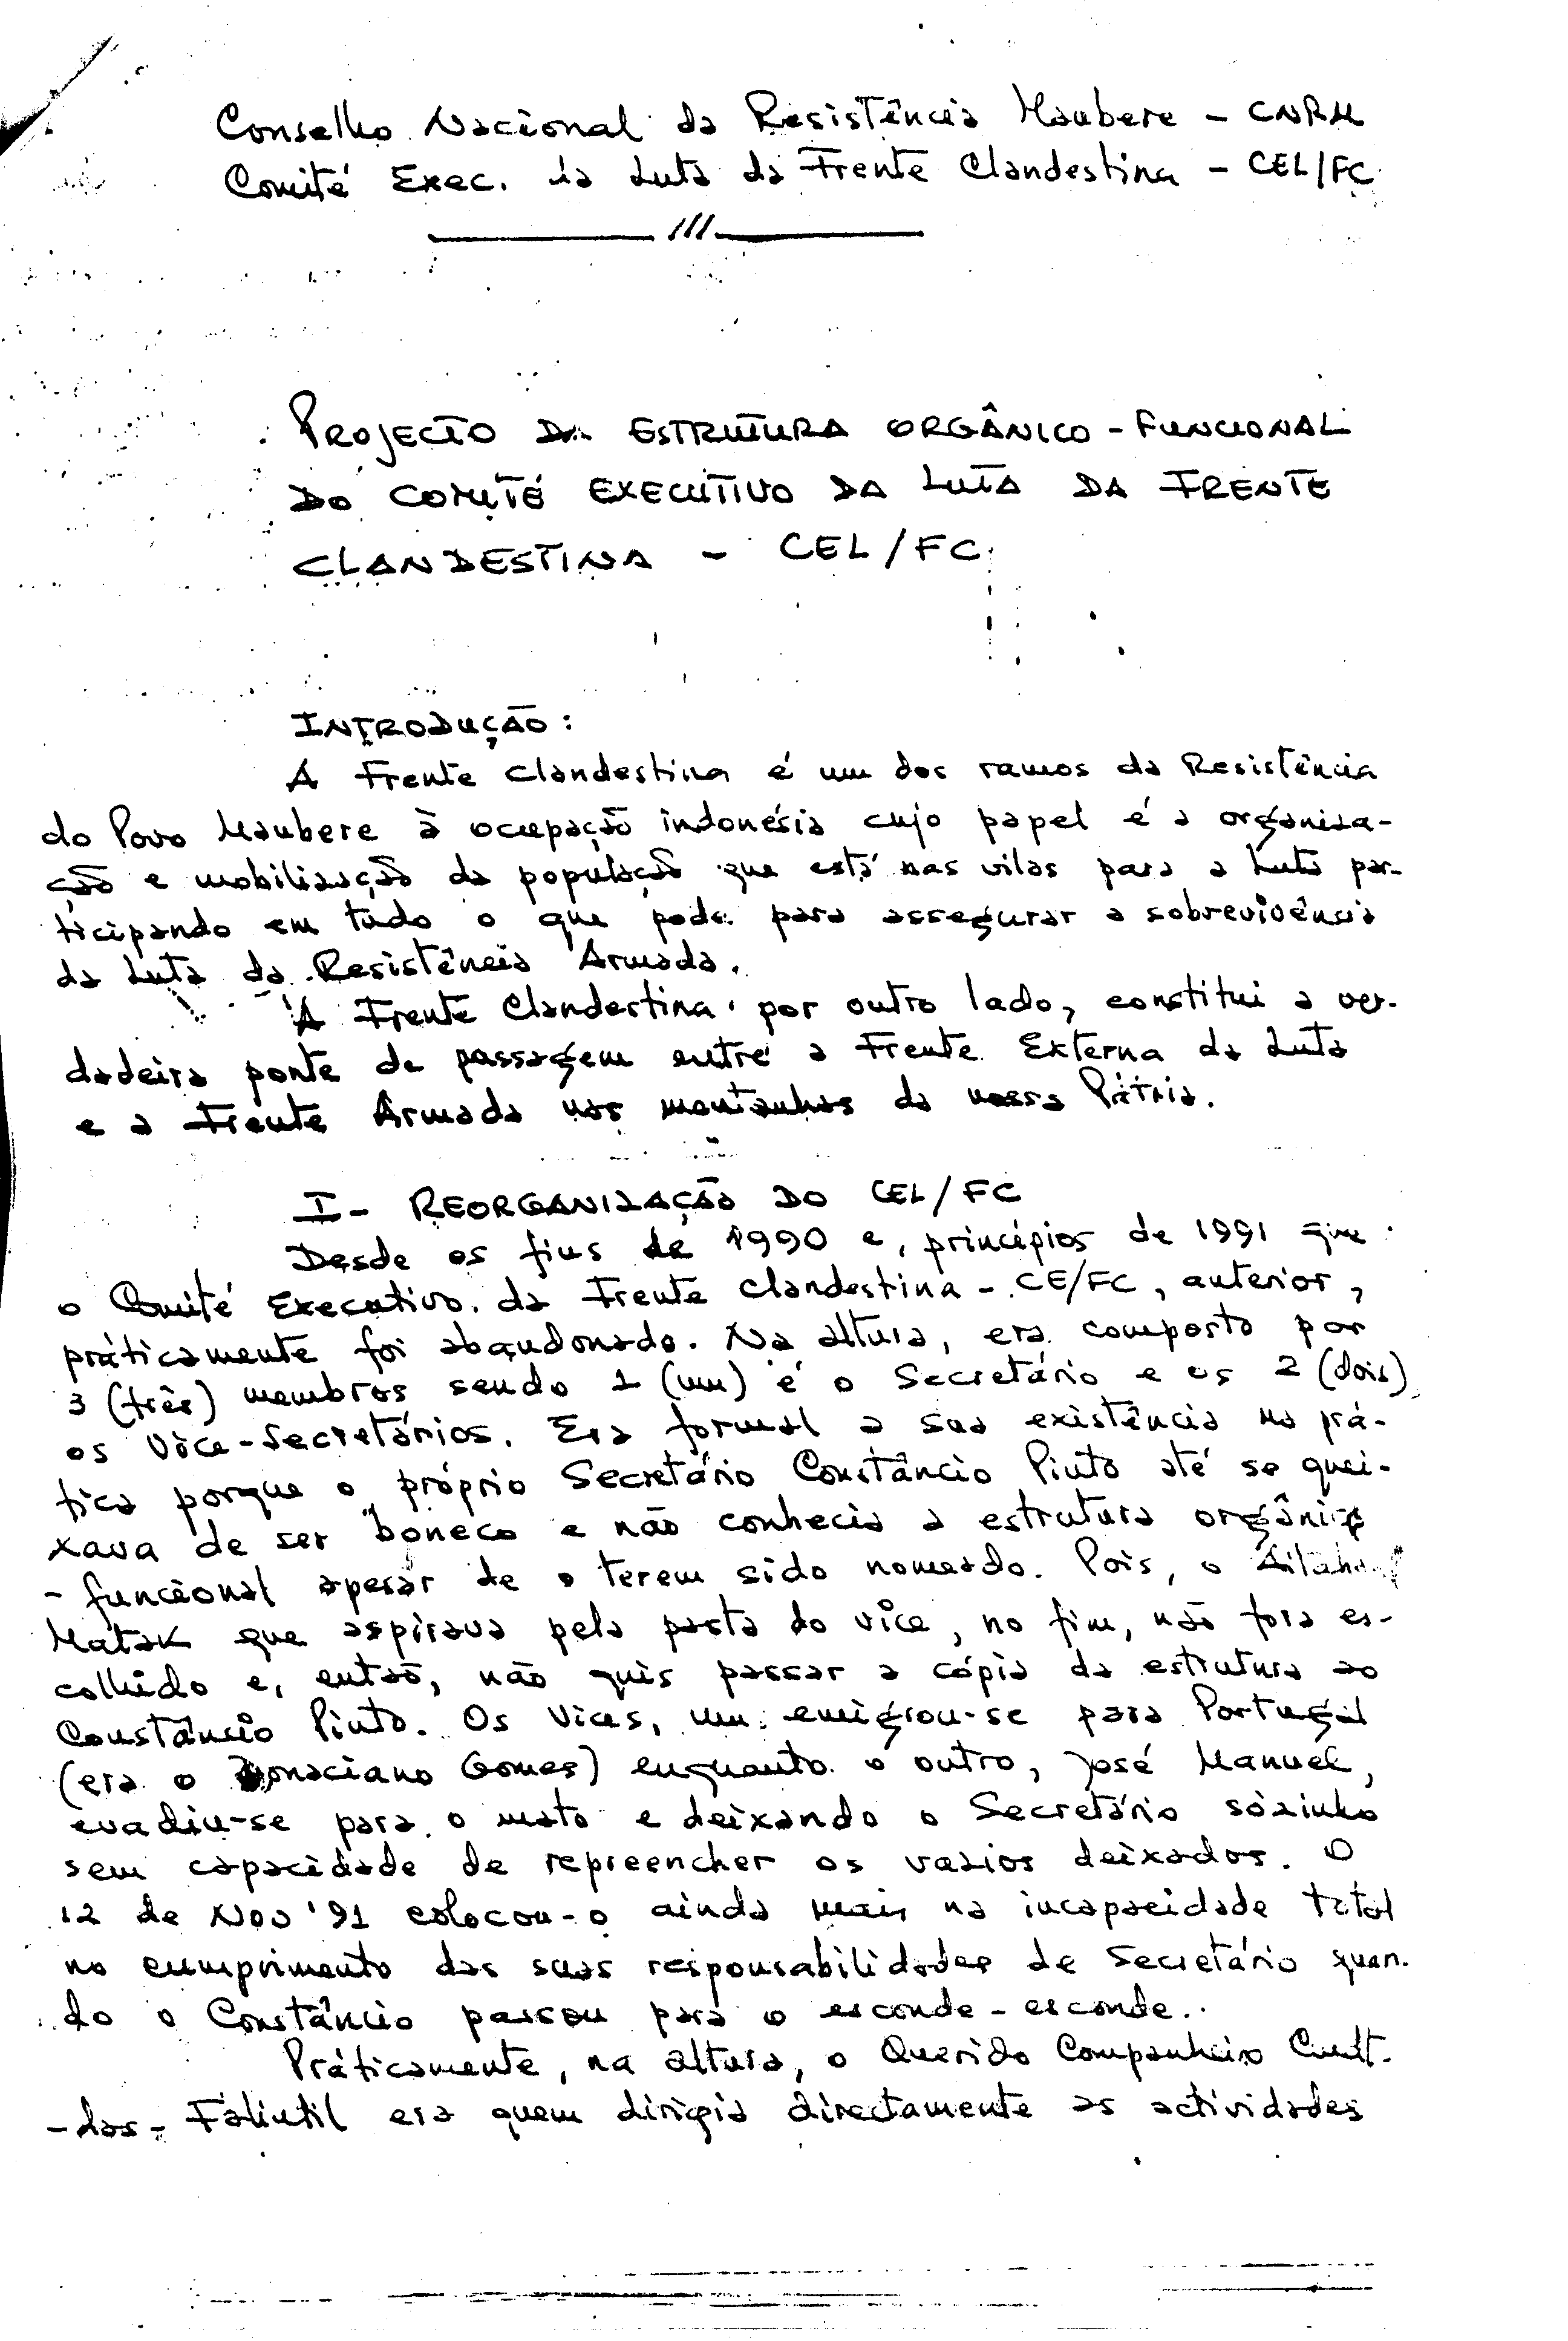 Conselho Nacional da Resistência Maubere - CNRM
Comité Exec. da Luta da Frente Clandestina - CEL/FC
///
PROJECTO DA ESTRUTURA ORGÂNICO - FUNCIONAL
DO COMITÉ EXECUTIVO DA LUTA DA FRENTE
CLANDESTINA - CEL/FC
INTRODUÇÃO:
A Frente Clandestina é um dos ramos da Resistência
do Povo Maubere à ocupação indonésia cujo papel é a organiza-
ção e mobilização da população que está nas vilas para a Luta par-
ticipando em tudo o que pode para assegurar a sobrevivência
da Luta da Resistência Armada.
A Frente Clandestina por outro lado, constitui a ver-
dadeira ponte de passagem entre a Frente Externa da Luta
e a Frente Armada nas montanhas da nossa Pátria.
I - REORGANIZAÇÃO DO CEL/FC
Desde os fins de 1990 e, princípios de 1991 que
o Comité Executivo da Frente Clandestina - CE/FC, anterior,
práticamente foi abandonado. Na altura, era composto por
3 (três) membros sendo 1 (um) é o Secretário e os 2 (dois)
os Vice-Secretários. Era formal a sua existência na prá-
tica porque o próprio Secretário Constâncio Pinto até se quei-
xava de ser "boneco e não conhecia a estrutura orgânico
- funcional apesar de o terem sido nomeado. Pois, o
Matak que aspirava pela pasta do vice, no fim, não fora es-
colhido e, então, não quis passar a cópia da estrutura ao
Constâncio Pinto. Os Vices, um emigrou-se para Portugal
(era o Donaciano Gomes) enquanto o outro, José Manuel,
evadiu-se para o mato e deixando o Secretário sòzinho
sem capacidade de repreencher os vazios deixados. O
12 de Nov '91 colocou-o ainda mais na incapacidade total
no cumprimento das suas responsabilidades de Secretário quan-
do o Constâncio passou para o esconde - esconde.
Práticamente, na altura, o Querido Companheiro Cmdt.
- das - Falintil era quem dirigia directamente as actividades